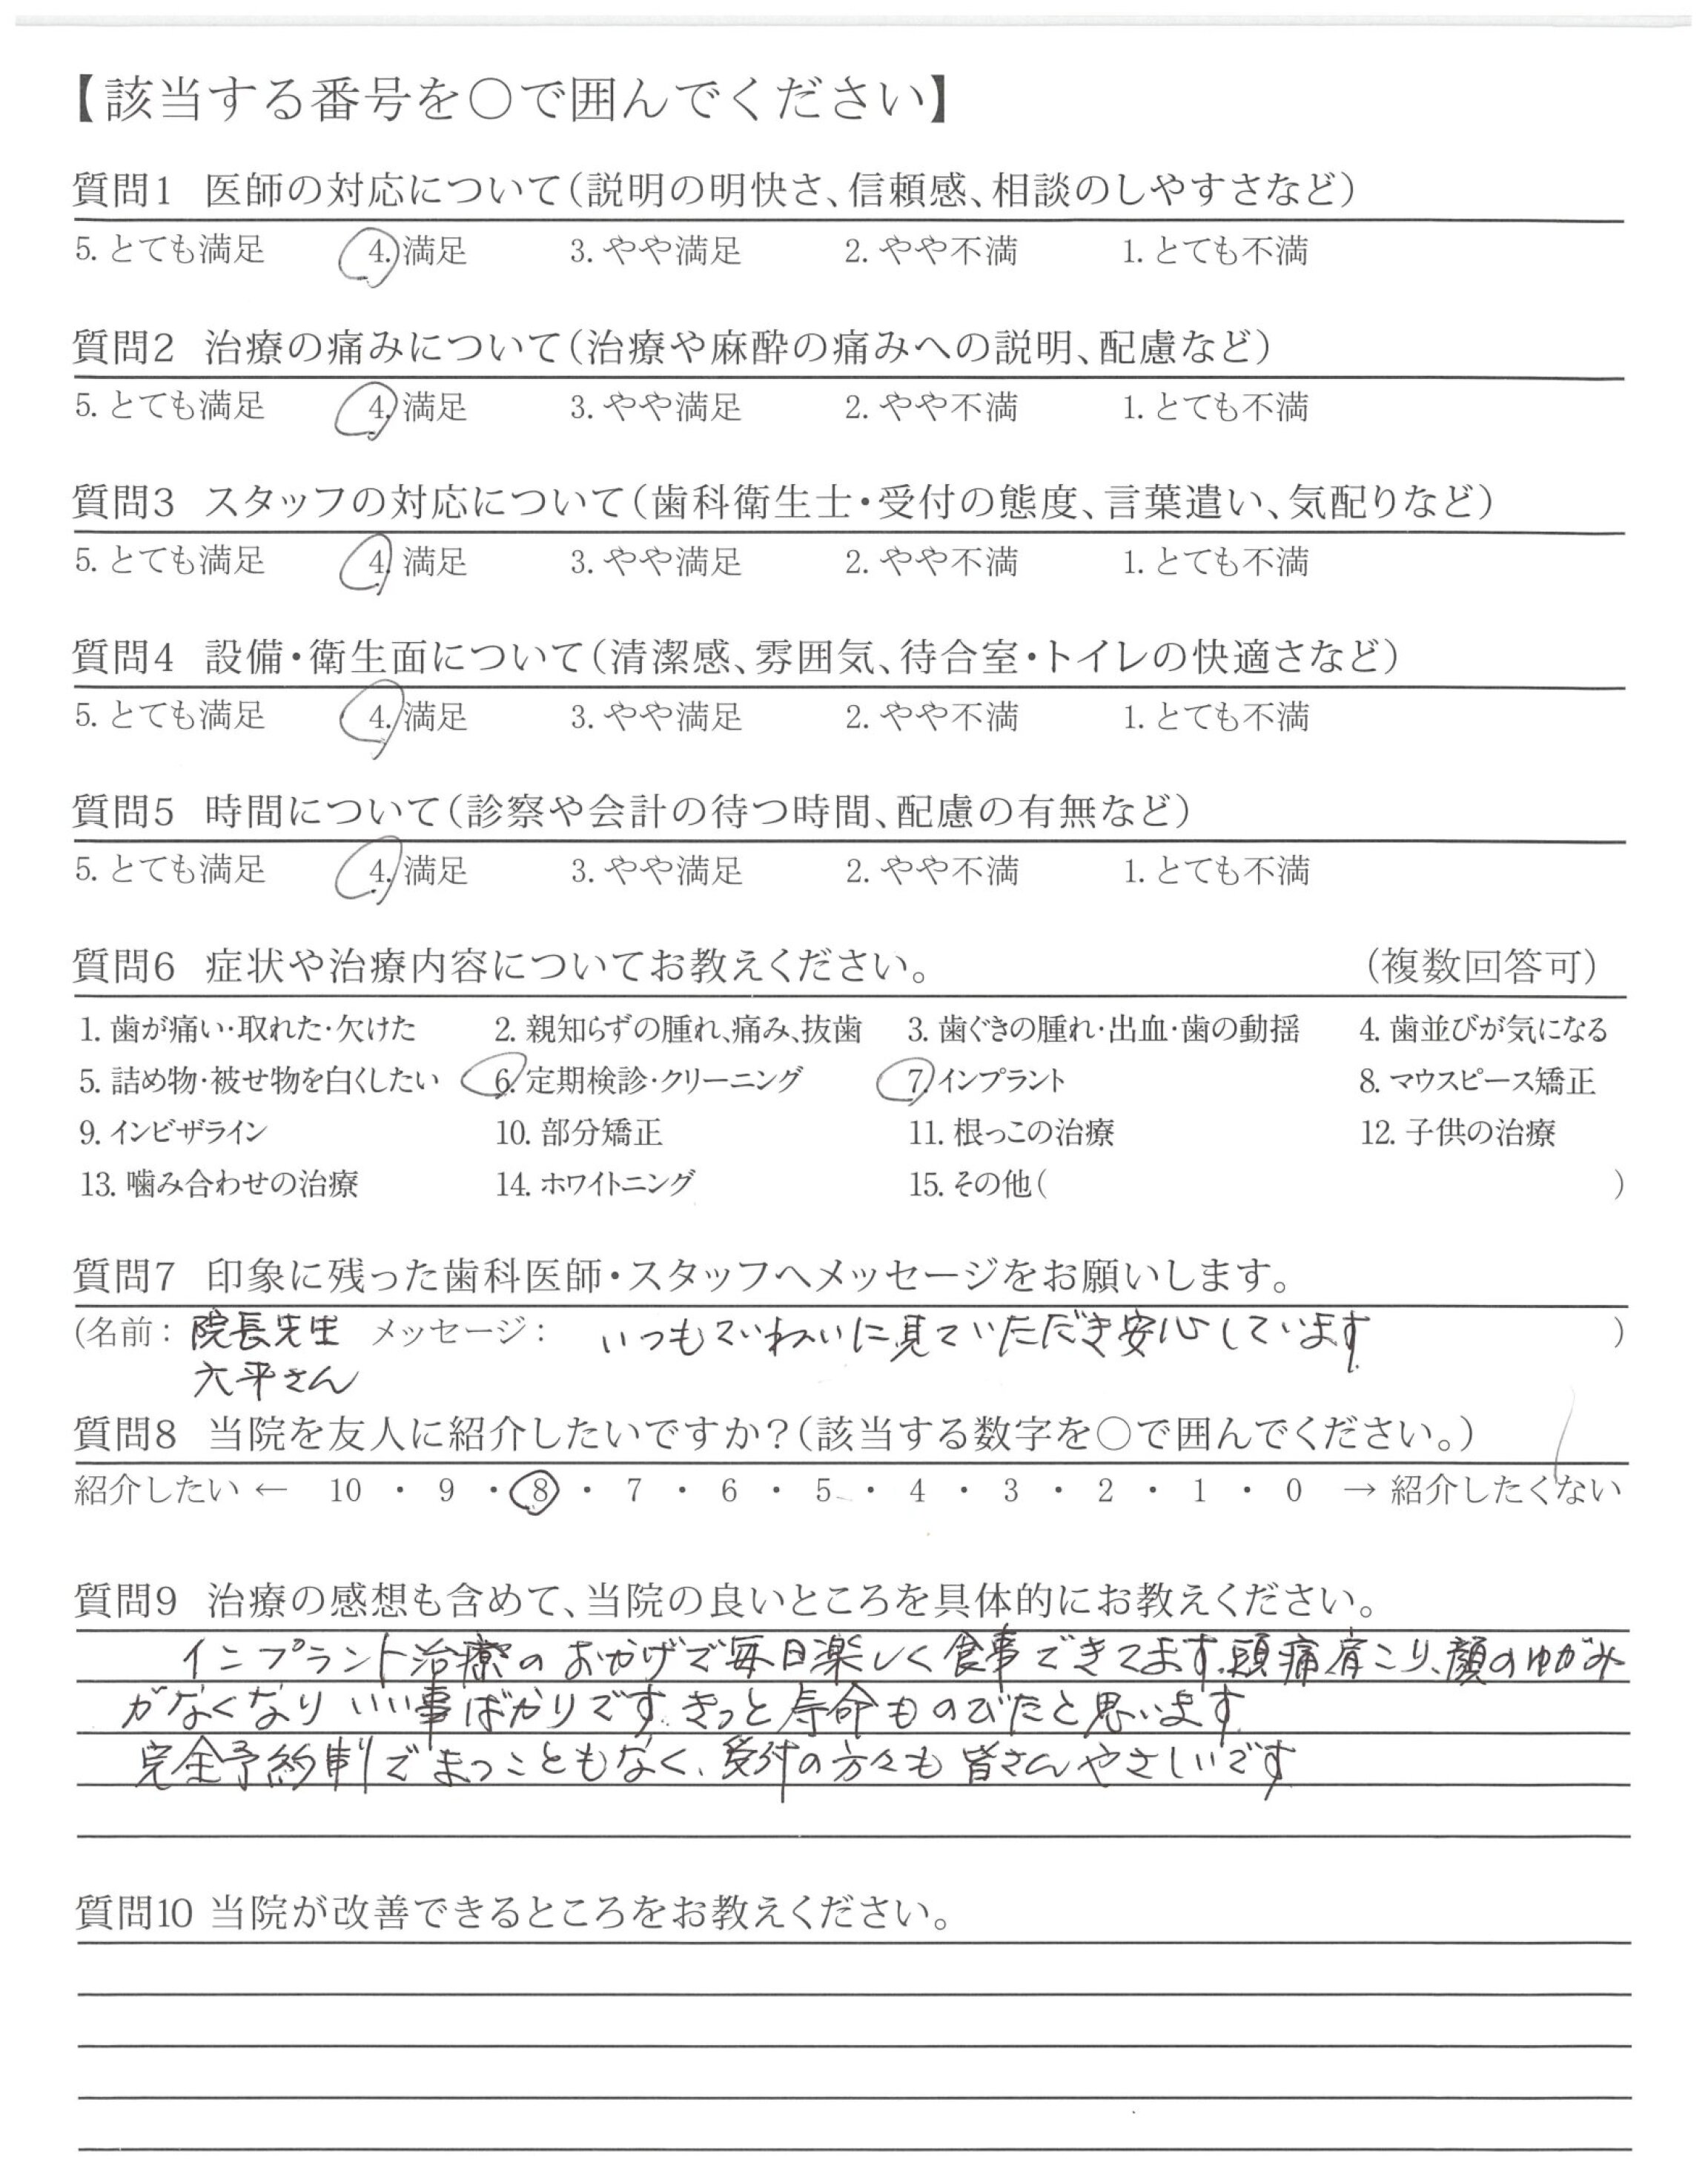 【該当する番号を○で囲んでください】
質問1 医師の対応について(説明の明快さ、信頼感、相談のしやすさなど)
5. とても満足 4. 満足 3. やや満足 2. やや不満 1. とても不満
質問2 治療の痛みについて(治療や麻酔の痛みへの説明、配慮など)
5. とても満足 4. 満足 3. やや満足 2. やや不満 1. とても不満
質問3 スタッフの対応について(歯科衛生士・受付の態度、言葉遣い、気配りなど)
5. とても満足 4. 満足 3. やや満足 2. やや不満 1. とても不満
質問4 設備・衛生面について(清潔感、雰囲気、待合室・トイレの快適さなど)
5. とても満足 4. 満足 3. やや満足 2. やや不満 1. とても不満
質問5 時間について(診察や会計の待つ時間、配慮の有無など)
5. とても満足 4. 満足 3. やや満足 2. やや不満 1. とても不満
質問6 症状や治療内容についてお教えください。 (複数回答可)
1. 歯が痛い・取れた・欠けた 2. 親知らずの腫れ、痛み、抜歯 3. 歯ぐきの腫れ・出血・歯の動揺 4. 歯並びが気になる
5. 詰め物・被せ物を白くしたい 6. 定期検診・クリーニング 7. インプラント 8. マウスピース矯正
9. インビザライン 10. 部分矯正 11. 根っこの治療 12. 子供の治療
13. 噛み合わせの治療 14. ホワイトニング 15. その他( )
質問7 印象に残った歯科医師・スタッフへメッセージをお願いします。
(名前: 院長先生 メッセージ: いつもていねいに見ていただき安心しています )
六平さん
質問8 当院を友人に紹介したいですか?(該当する数字を○で囲んでください。)
紹介したい ← 10 ・ 9 ・ 8 ・ 7 ・ 6 ・ 5 ・ 4 ・ 3 ・ 2 ・ 1 ・ 0 → 紹介したくない
質問9 治療の感想も含めて、当院の良いところを具体的にお教えください。
インプラント治療のおかげで毎日楽しく食事できてます。頭痛肩こり、顔のゆがみ
がなくなり いい事ばかりです。きっと寿命ものびたと思います
完全予約制でまつこともなく、受付の方々も皆さんやさしいです
質問10 当院が改善できるところをお教えください。